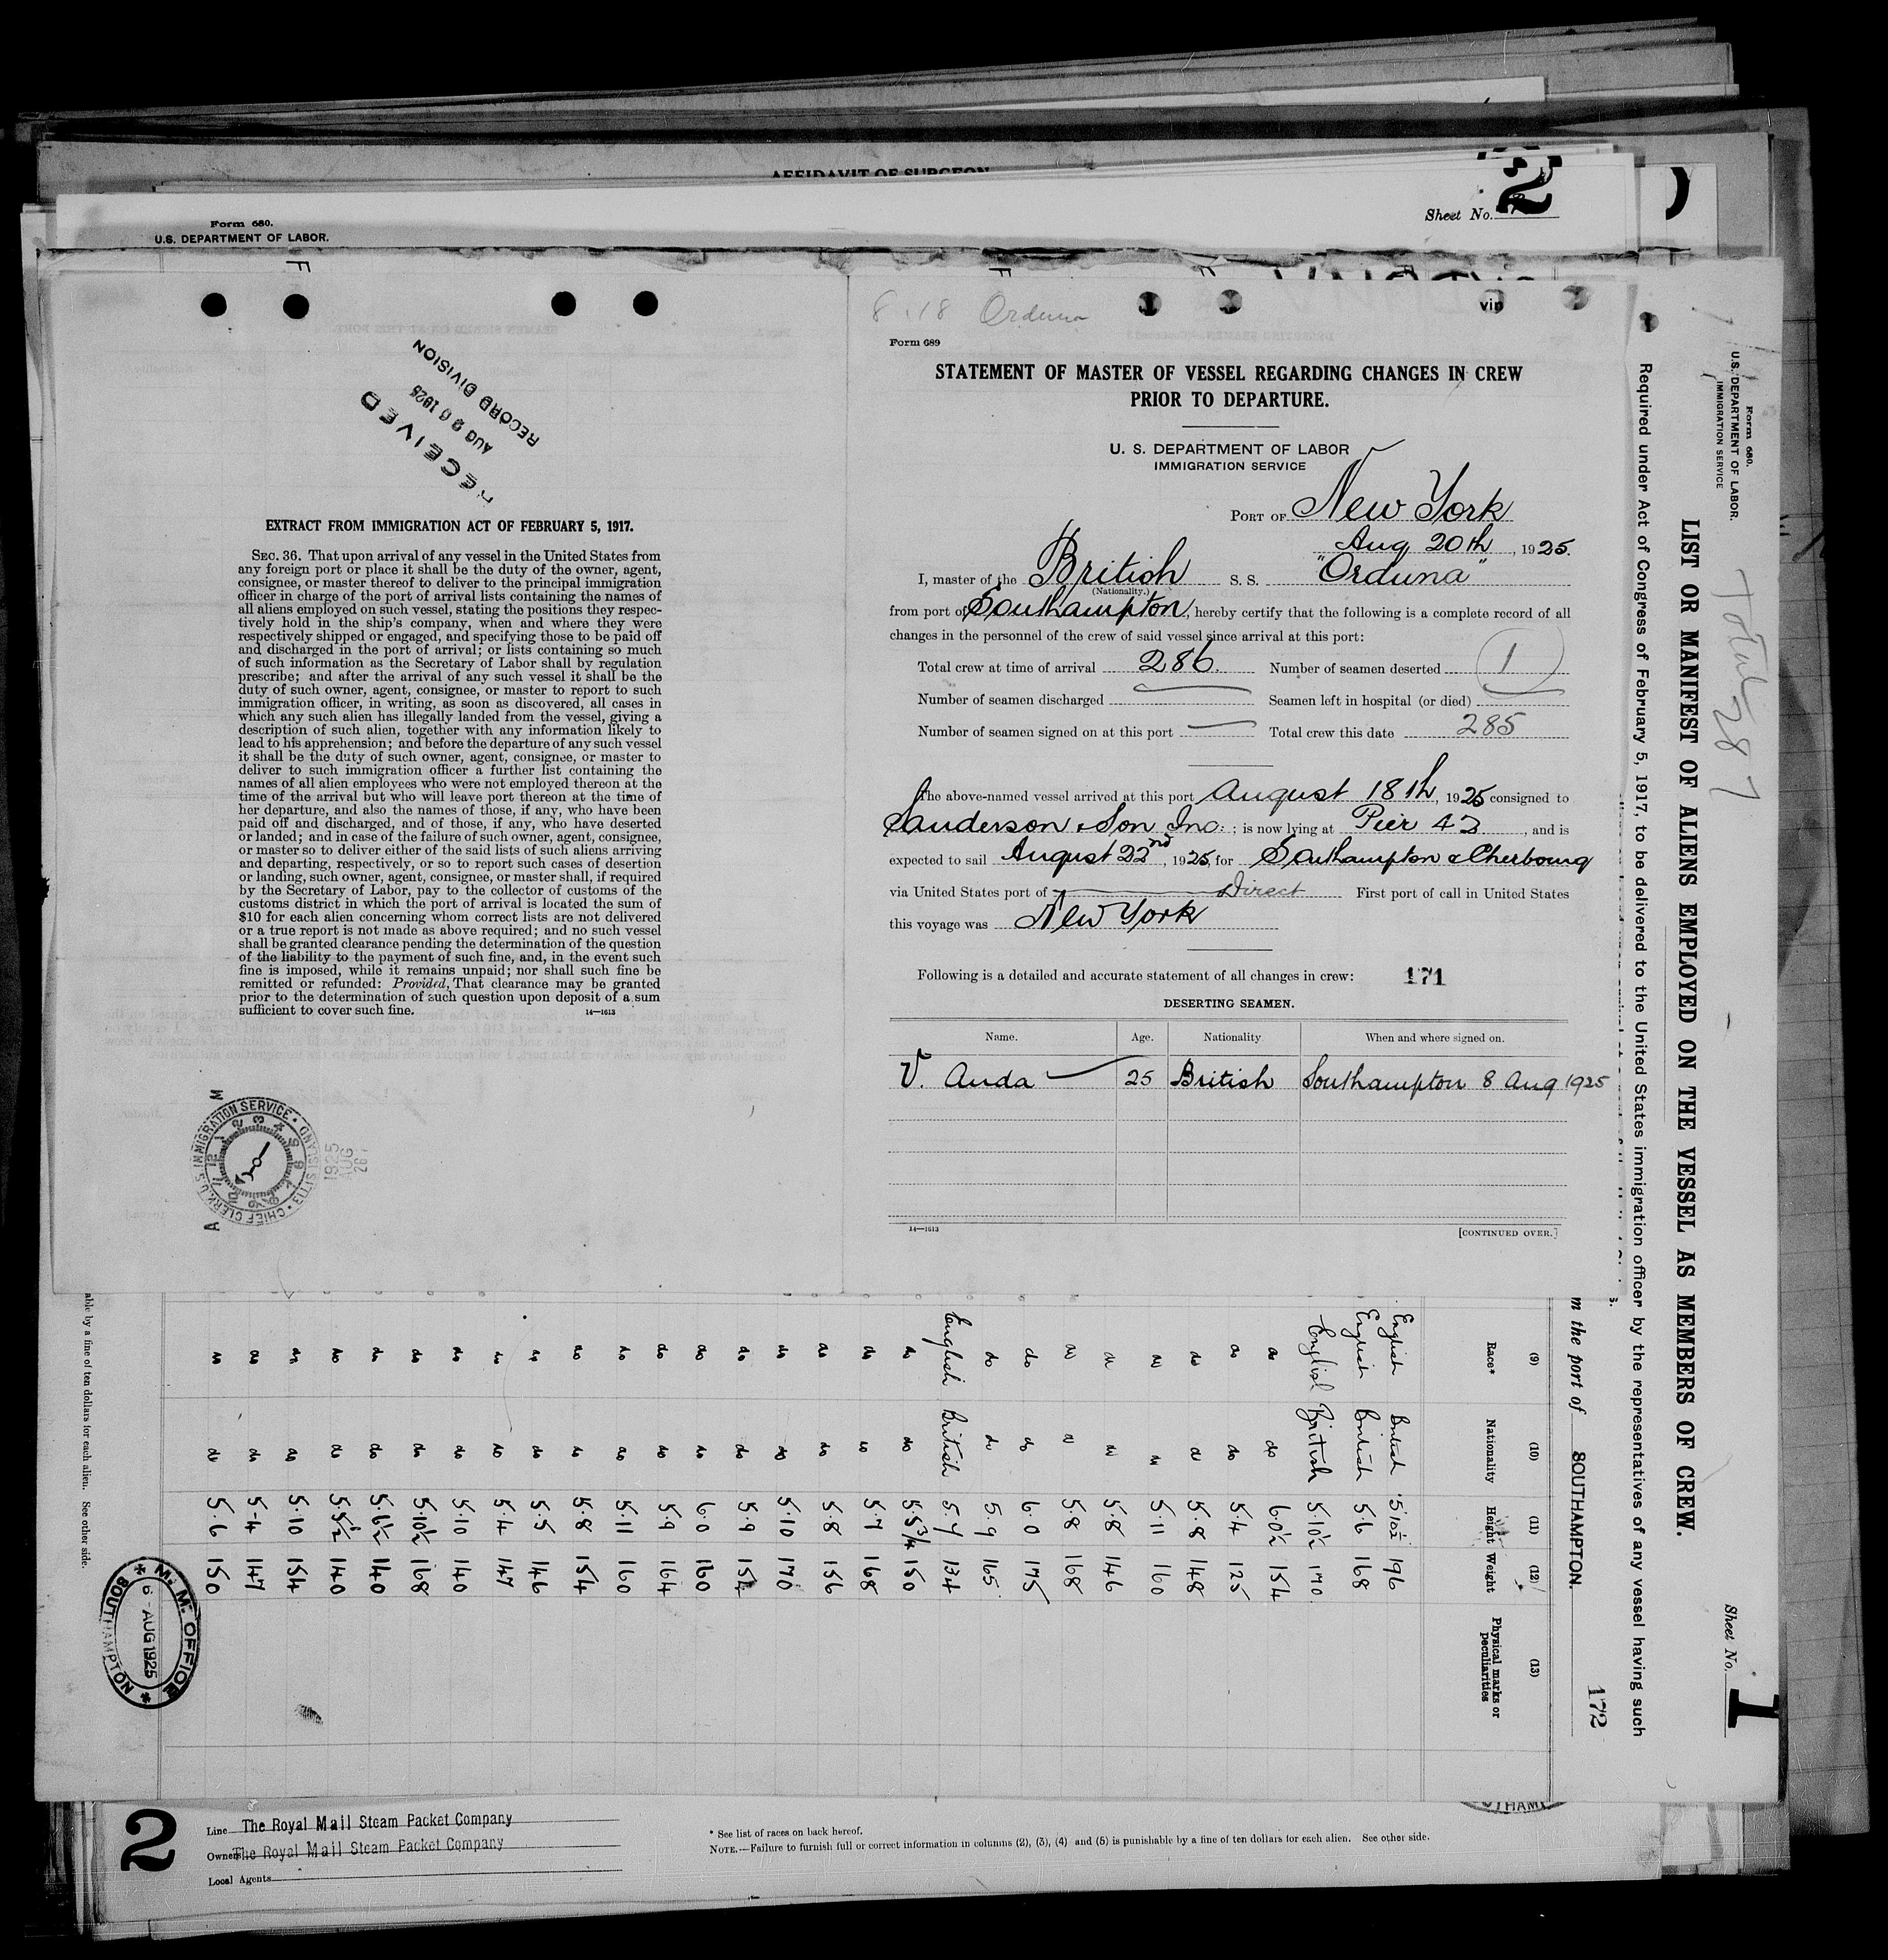 AFFIDAVIT OF SURGEON
2
Sheet No.
Form 680.
U.S. DEPARTMENT OF LABOR.
RECEIVED
AUG 20 1925
RECORD DIVISION
EXTRACT FROM IMMIGRATION ACT OF FEBRUARY 5, 1917.
SEC. 36. That upon arrival of any vessel in the United States from
any foreign port or place it shall be the duty of the owner, agent,
consignee, or master thereof to deliver to the principal immigration
officer in charge of the port of arrival lists containing the names of
all aliens employed on such vessel, stating the positions they respec-
tively hold in the ship's company, when and where they were
respectively shipped or engaged, and specifying those to be paid off
and discharged in the port of arrival; or lists containing so much
of such information as the Secretary of Labor shall by regulation
prescribe; and after the arrival of any such vessel it shall be the
duty of such owner, agent, consignee, or master to report to such
immigration officer, in writing, as soon as discovered, all cases in
which any such alien has illegally landed from the vessel, giving a
description of such alien, together with any information likely to
lead to his apprehension; and before the departure of any such vessel
it shall be the duty of such owner, agent, consignee, or master to
deliver to such immigration officer a further list containing the
names of all alien employees who were not employed thereon at the
time of the arrival but who will leave port thereon at the time of
her departure, and also the names of those, if any, who have been
paid off and discharged, and of those, if any, who have deserted
or landed; and in case of the failure of such owner, agent, consignee,
or master so to deliver either of the said lists of such aliens arriving
and departing, respectively, or so to report such cases of desertion
or landing, such owner, agent, consignee, or master shall, if required
by the Secretary of Labor, pay to the collector of customs of the
customs district in which the port of arrival is located the sum of
$10 for each alien concerning whom correct lists are not delivered
or a true report is not made as above required; and no such vessel
shall be granted clearance pending the determination of the question
of the liability to the payment of such fine, and, in the event such
fine is imposed, while it remains unpaid; nor shall such fine be
remitted or refunded: Provided, That clearance may be granted
prior to the determination of such question upon deposit of a sum
sufficient to cover such fine.
14—1613
CHIEF CLERK, U.S. IMMIGRATION SERVICE • ELLIS ISLAND
1925
AUG
26
8.18 Orduna
Form 689
STATEMENT OF MASTER OF VESSEL REGARDING CHANGES IN CREW
PRIOR TO DEPARTURE.
U. S. DEPARTMENT OF LABOR
IMMIGRATION SERVICE
PORT OF New York
Aug 20th, 1925.
I, master of the British S. S. "Orduna"
(Nationality.)
from port of Southampton, hereby certify that the following is a complete record of all
changes in the personnel of the crew of said vessel since arrival at this port:
Total crew at time of arrival 286. Number of seamen deserted 1
Number of seamen discharged Seamen left in hospital (or died)
Number of seamen signed on at this port Total crew this date 285
The above-named vessel arrived at this port August 18th, 1925 consigned to
Sanderson & Son Inc.; is now lying at Pier 42, and is
expected to sail August 22nd, 1925, for Southampton & Cherbourg
via United States port of Direct First port of call in United States
this voyage was New York
Following is a detailed and accurate statement of all changes in crew: 171
DESERTING SEAMEN.
Name. Age. Nationality When and where signed on.
V. Anda 25 British Southampton 8 Aug 1925
14—1613
[CONTINUED OVER.]
Form 680.
U.S. DEPARTMENT OF LABOR.
IMMIGRATION SERVICE
Total 287
Sheet No. 1
LIST OR MANIFEST OF ALIENS EMPLOYED ON THE VESSEL AS MEMBERS OF CREW.
Required under Act of Congress of February 5, 1917, to be delivered to the United States immigration officer by the representatives of any vessel having such
172
m the port of SOUTHAMPTON.
(9) (10) (11) (12) (13)
Race* Nationality Height Weight Physical marks or peculiarities
English British 5.10½ 196
English British 5.6 168
English British 5.10½ 170.
do do 6.0½ 154
do do 5.4 125
do do 5.8 148
do do 5.11 160
do do 5.8 146
do do 5.8 168
do do 6.0 175
do do 5.9 165
English British 5.7 134
do do 5.5¾ 150
do do 5.7 168
do do 5.8 156
do do 5.10 170
do do 5.9 154
do do 6.0 160
do do 5.9 164
do do 5.11 160
do do 5.8 154
do do 5.5 146
do do 5.4 147
do do 5.10 140
do do 5.10½ 168
do do 5.6½ 140
do do 5.5½ 140
do do 5.10 154
do do 5-4 147
do do 5.6 150
able by a fine of ten dollars for each alien. See other side.
M. M. OFFICE
6 AUG 1925
SOUTHAMPTON
2
Line The Royal Mail Steam Packet Company
Owners The Royal Mail Steam Packet Company
Local Agents
* See list of races on back hereof.
NOTE.—Failure to furnish full or correct information in columns (2), (3), (4) and (5) is punishable by a fine of ten dollars for each alien. See other side.